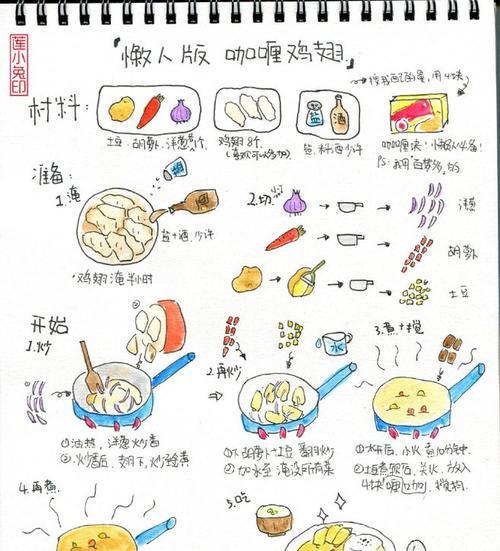 莲小兔印
懒人版 咖喱鸡翅
按我自己的量，用4块
材料：
土豆、胡萝卜、洋葱各1个
鸡翅 8个
(喜欢可以多加)
盐、料酒少许
咖喱块！懒人必备！
PS：我用"百梦多"的
盐
酒
准备：
1.腌
盐
酒
盐+酒，少许
鸡翅 腌半小时
2.切
洋葱
胡萝卜
土豆
开始
1.炒
2.再炒
水
3.煮+搅
①油热，洋葱炒香
②炒香后，翅下，炒金黄
①下胡萝卜+土豆 翻炒
②加水至 淹没所有菜
①水开后，小火 煮10分钟
4块咖喱
4.再煮
5.吃